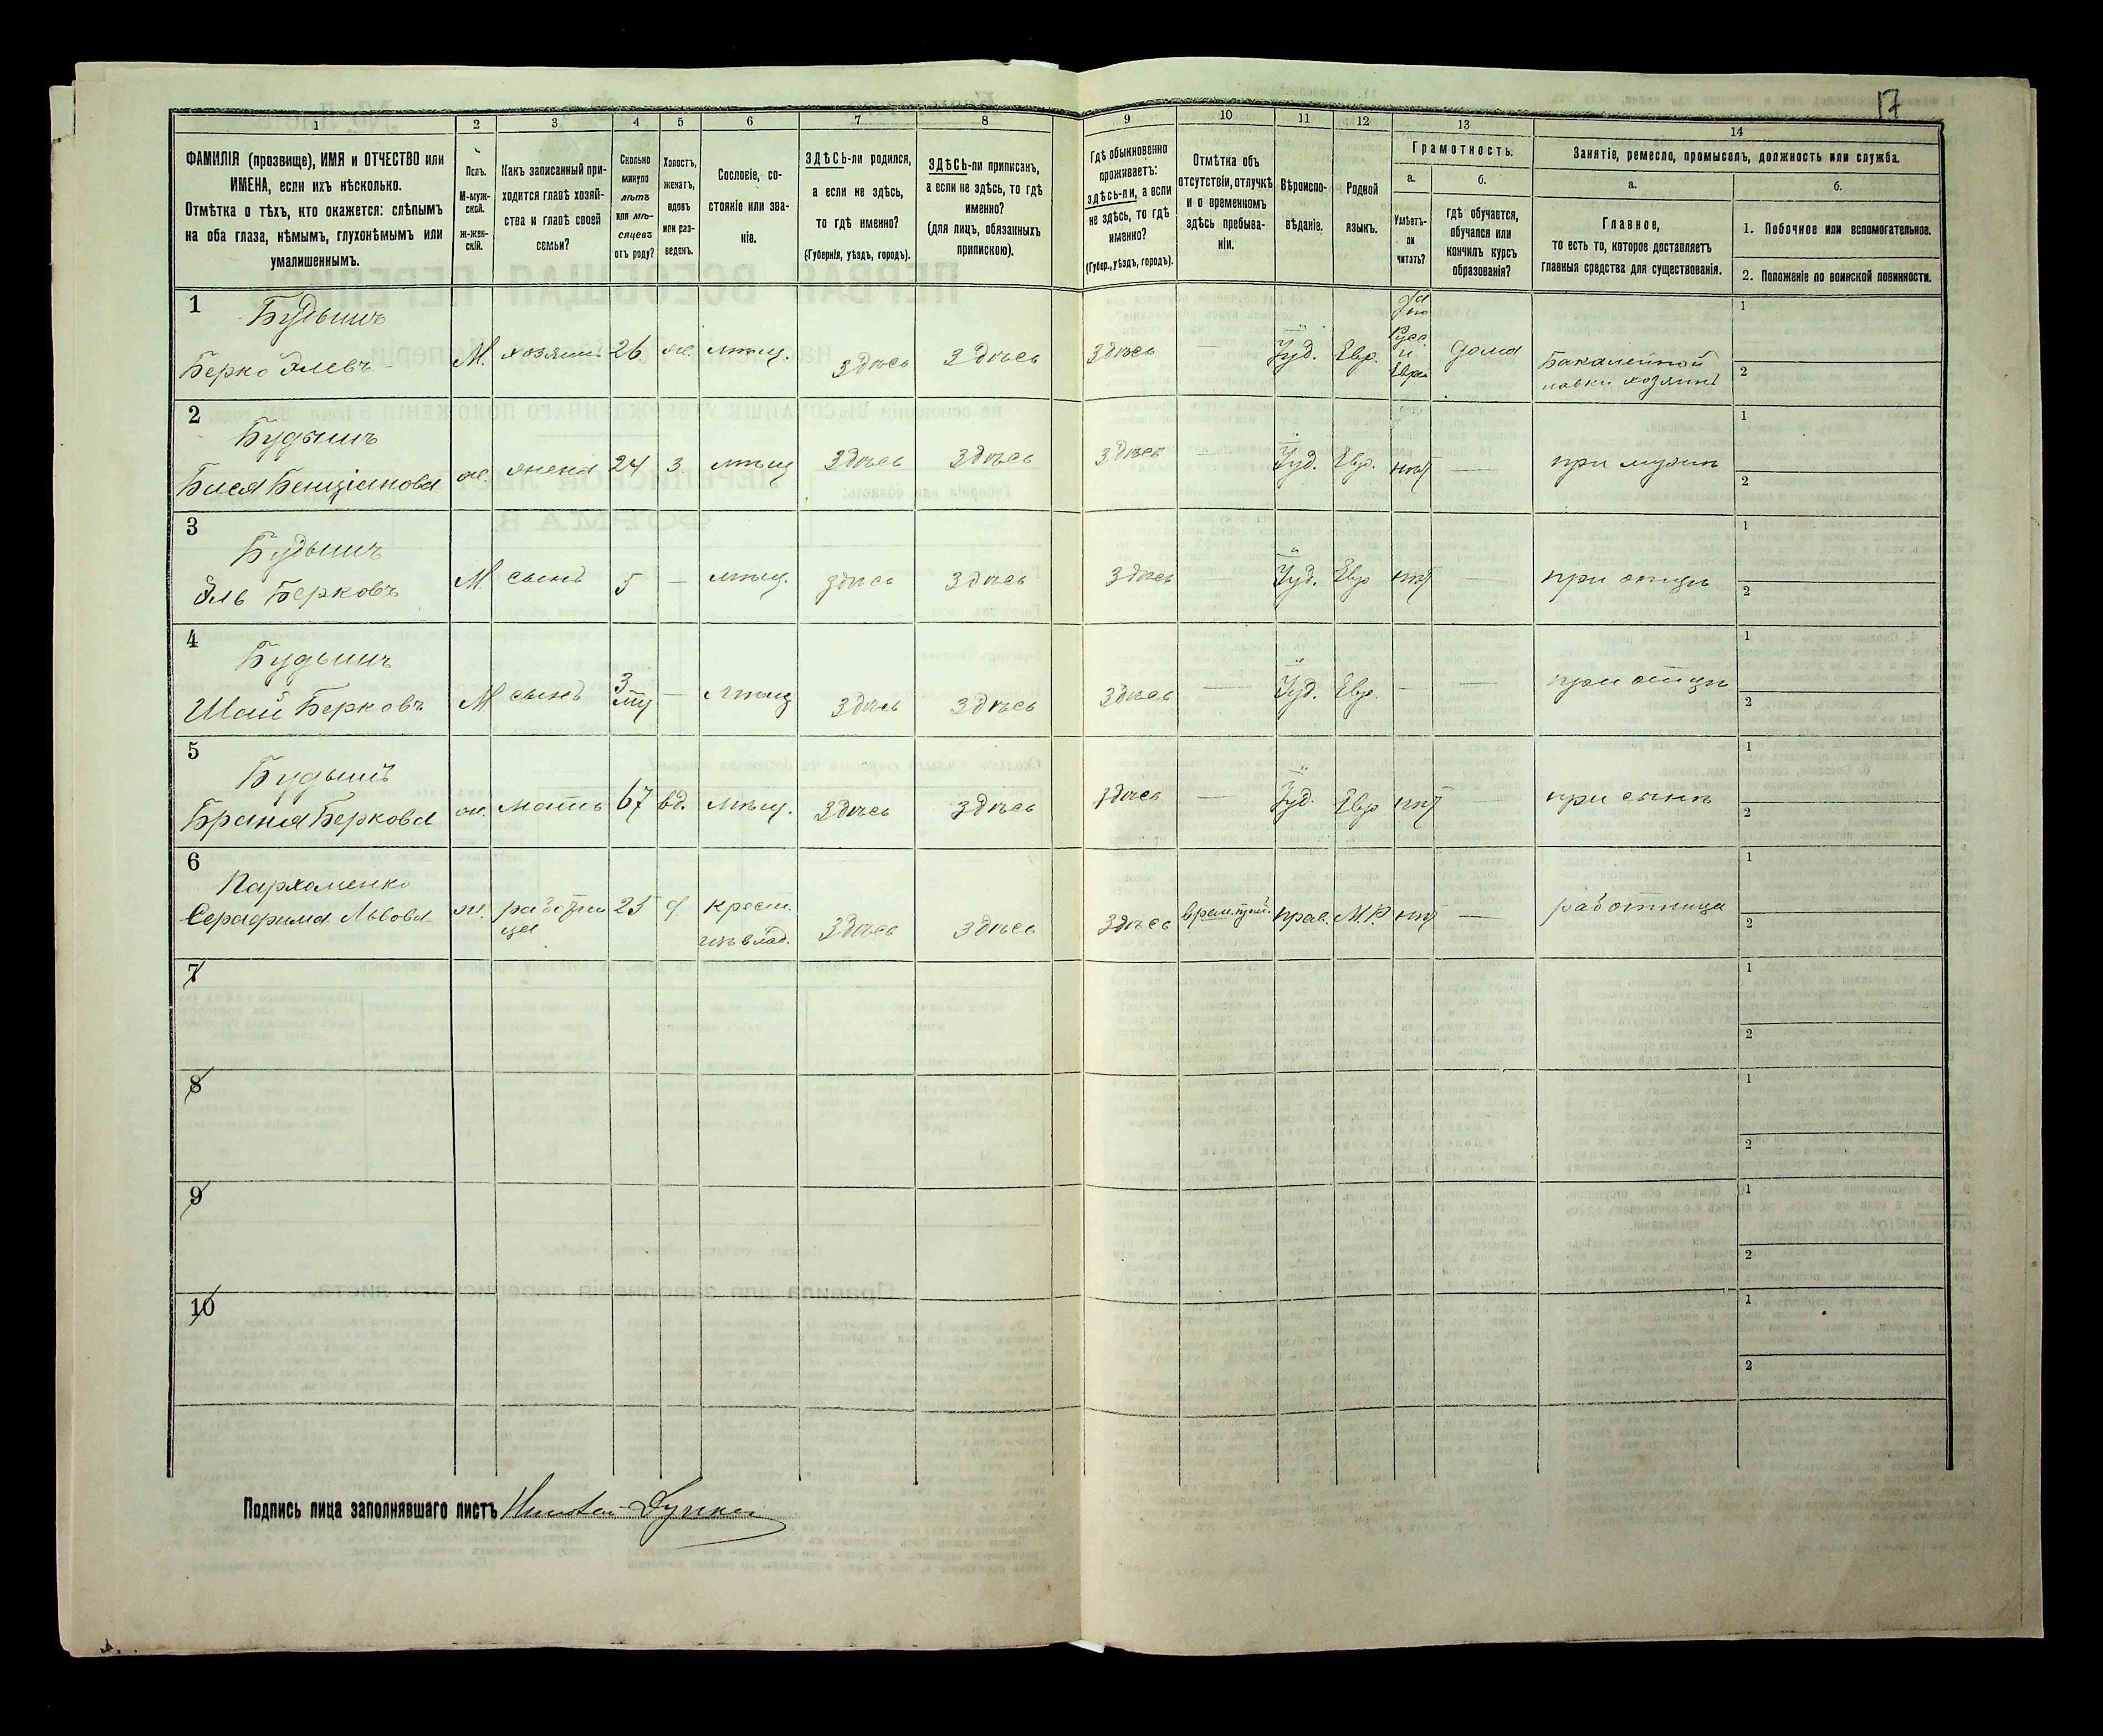 17
1 2 3 4 5 6 7 8 9 10 11 12 13 14
ФАМИЛІЯ (прозвище), ИМЯ и ОТЧЕСТВО или
ИМЕНА, если ихъ нѣсколько.
Отмѣтка о тѣхъ, кто окажется: слѣпымъ
на оба глаза, нѣмымъ, глухонѣмымъ или
умалишеннымъ.
Полъ.
М-муж-
ской.
Ж-жен-
скій.
Какъ записанный при-
ходится главѣ хозяй-
ства и главѣ своей
семьи?
Сколько
минуло
лѣтъ
или мѣ-
сяцевъ
отъ роду?
Холостъ,
женатъ,
вдовъ
или раз-
веденъ.
Сословіе, со-
стояніе или зва-
ніе.
ЗДѢСЬ-ли родился,
а если не здѣсь,
то гдѣ именно?
(Губернія, уѣздъ, городъ).
ЗДѢСЬ-ли приписанъ,
а если не здѣсь, то гдѣ
именно?
(для лицъ, обязанныхъ
припискою).
Гдѣ обыкновенно
проживаетъ:
здѣсь-ли, а если
не здѣсь, то гдѣ
именно?
(Губер., уѣздъ, городъ).
Отмѣтка объ
отсутствіи, отлучкѣ
и о временномъ
здѣсь пребыва-
ніи.
Вѣроиспо-
вѣданіе.
Родной
языкъ.
Грамотность.
а.
Умѣетъ-
ли
читать?
б.
гдѣ обучается,
обучался или
кончилъ курсъ
образованія?
Занятіе, ремесло, промыселъ, должность или служба.
а.
Главное,
то есть то, которое доставляетъ
главныя средства для существованія.
б.
1. Побочное или вспомогательное.
2. Положеніе по воинской повинности.
1
Будышъ
Берко Элевъ
М. хозяинъ 26 ж. мѣщ. здѣсь здѣсь здѣсь — Іуд. Евр.
да
по
Русс.
и
Евре
дома
Бакалейной
лавки хозяинъ
1
2
2
Будышъ
Бася Бенціанова ж. жена 24 з. мѣщ здѣсь здѣсь здѣсь — Іуд. Евр. нѣт — при мужѣ
1
2
3
Будышъ
Эль Берковъ М. сынъ 5 — мѣщ. здѣсь здѣсь здѣсь — Іуд. Евр нѣт — при отцѣ
1
2
4
Будышъ
Шай Берковъ М сынъ 3 мц — мѣщ здѣсь здѣсь здѣсь — Іуд. Евр. — — при отцѣ
1
2
5
Будышъ
Браня Беркова ж. мать 67 вд. мѣщ. здѣсь здѣсь здѣсь — Іуд. Евр нѣт — при сынѣ
1
2
6
Пархоменко
Серафима Львова ж. работни
ца
25 д. крест.
изъ влад.
здѣсь здѣсь здѣсь прав. М.Р. нѣт — работница
1
2
7
1
2
8
1
2
9
1
2
10
1
2
Подпись лица заполнявшаго листъ